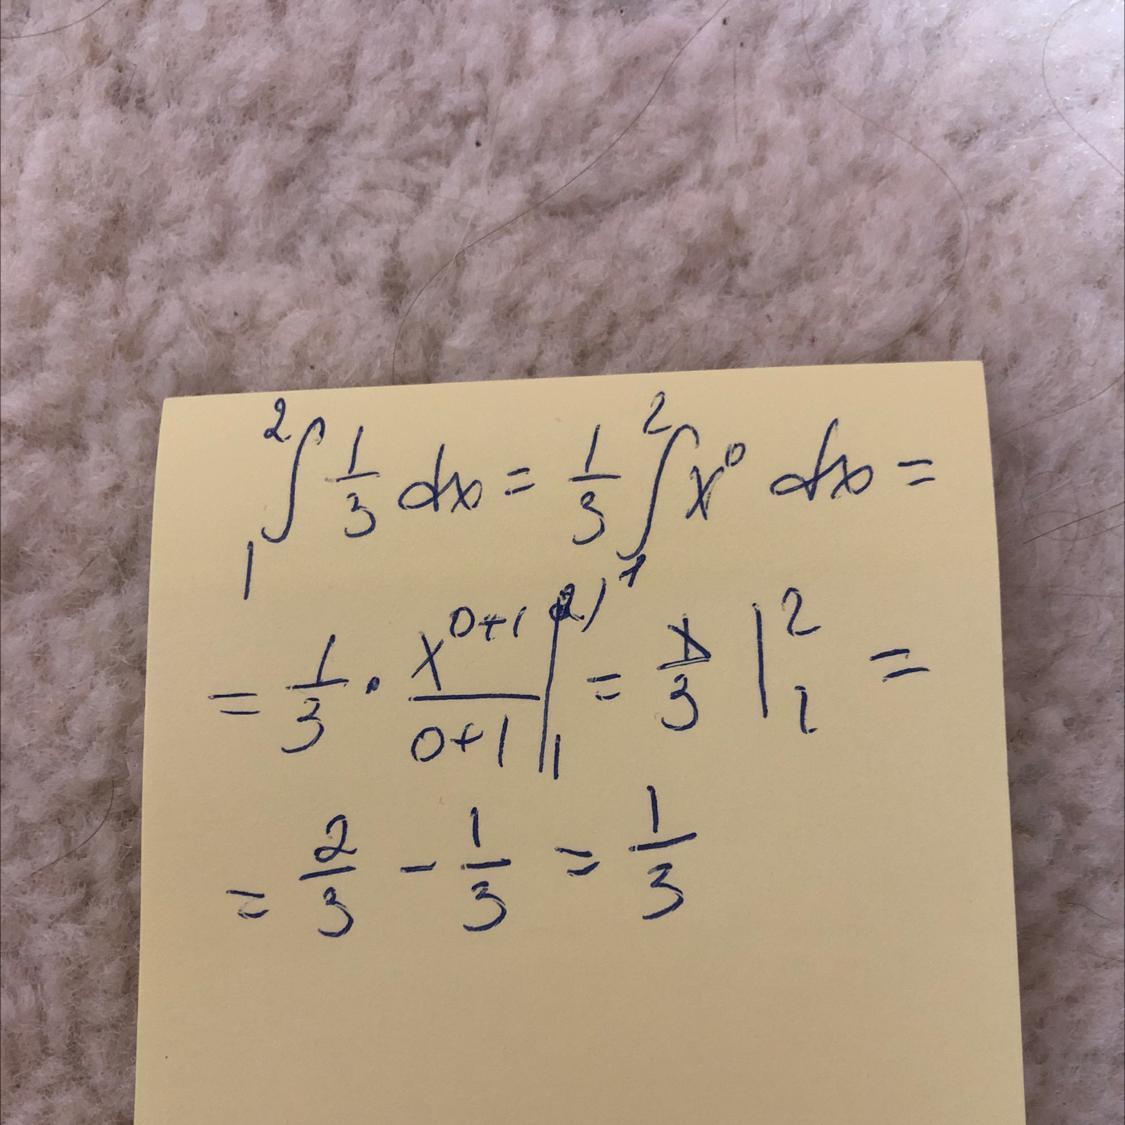 ∫₁² 1/3 dx = 1/3 ∫₁² x⁰ dx =
= 1/3 · x⁰⁺¹/(0+1) |₁² = x/3 |₁² =
= 2/3 - 1/3 = 1/3